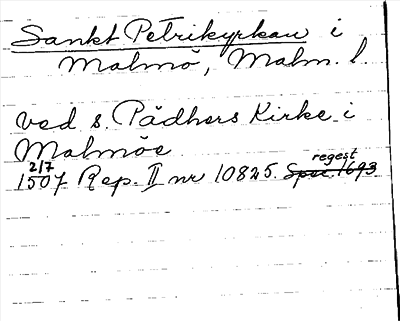 Sankt Petrikyrkan i
Malmö, Malm. l.
ved s. Pädhers Kirke i
Malmöe
2/7
1507 Rep. II nr 10825. Spec. 1693
regest